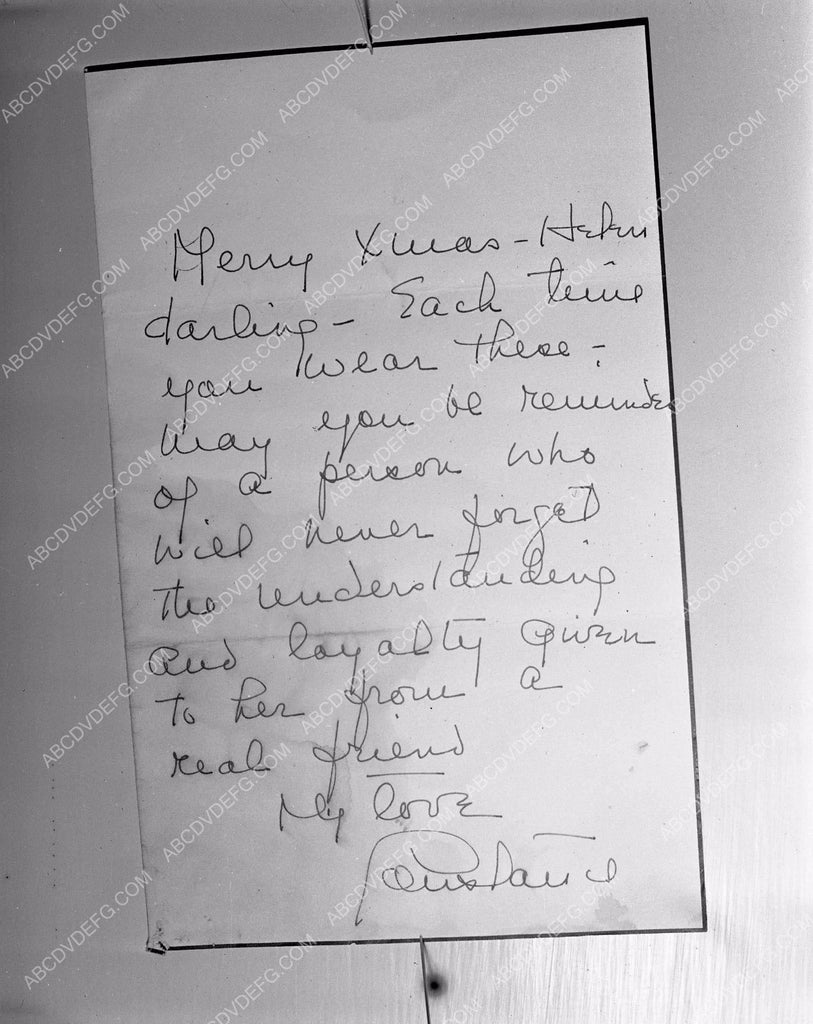 Merry Xmas - Helen
darling - Each time
you wear these -
may you be reminded
of a person who
will never forget
the understanding
and loyalty given
to her from a
real friend
My love
Constance
ABCDVDEFG.COM